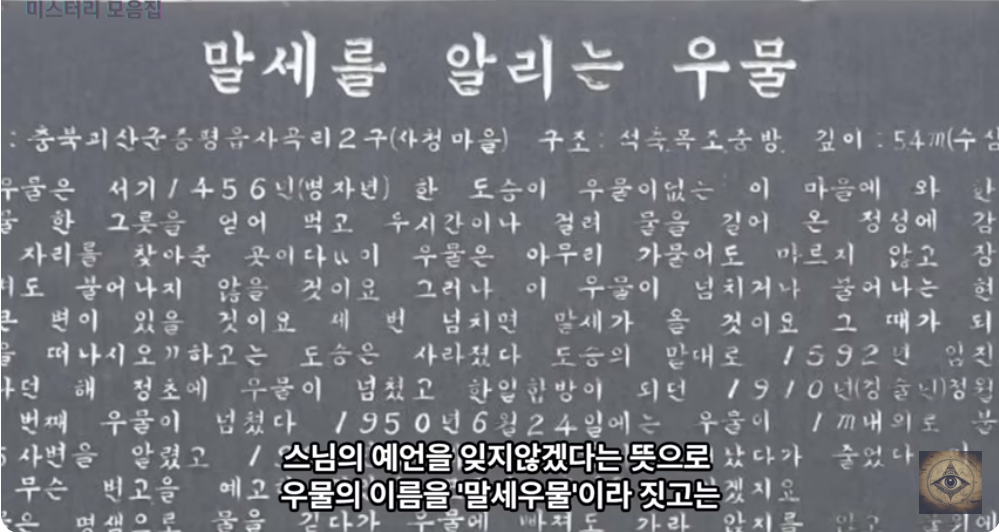 미스터리 모음집
말세를 알리는 우물
: 충북괴산군증평읍사곡리2구(사청마을) 구조 : 석축목조중방. 깊이 : 5.4m(수심
우물은 서기1456년(병자년) 한 도승이 우물이없는 이 마을에 와 한
물 한 그릇을 얻어 먹고 두시간이나 걸려 물을 길어 온 정성에 감
자리를 찾아준 곳이다"이 우물은 아무리 가물어도 마르지 않고 장
도 불어나지 않을 것이요 그러나 이 우물이 넘치거나 불어나는 현
큰 변이 있을 것이요 세 번 넘치면 말세가 올 것이요 그 때가 되
을 떠나시오"하고는 도승은 사라졌다 도승의 말대로 1592년 임진
나던 해 정초에 우물이 넘쳤고 한일합방이 되던 1910년(경술년)정월
번째 우물이 넘쳤다 1950년6월24일에는 우물이 1m내외로 분
사변을 알렸고 1 았다가 줄었다
무슨 변고를 예고 겠지요
은 명생으로 물을 긷다가 우물에 빠져도 가라 앉지를 않고
스님의 예언을 잊지않겠다는 뜻으로
우물의 이름을 '말세우물'이라 짓고는